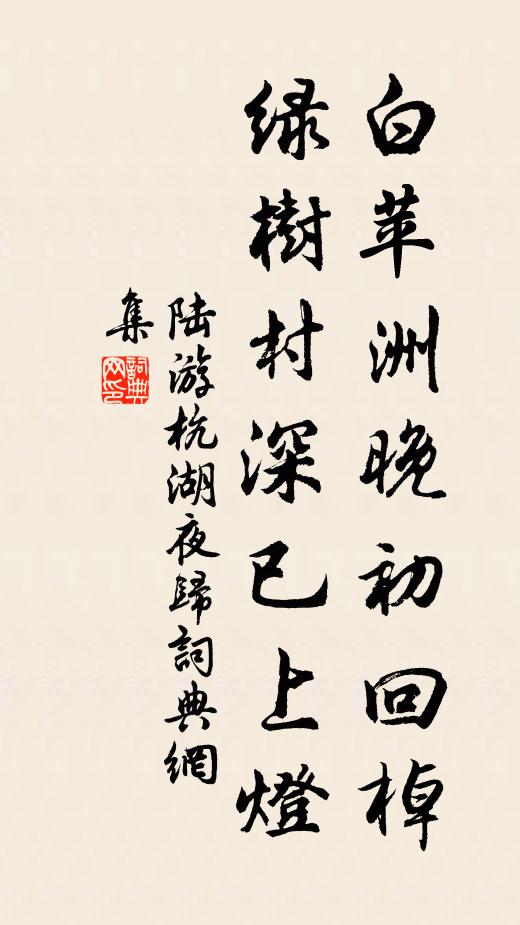 白苹洲晚初回棹
绿樹村深已上燈
陆游杭湖夜歸詞典網
集
詞典网印